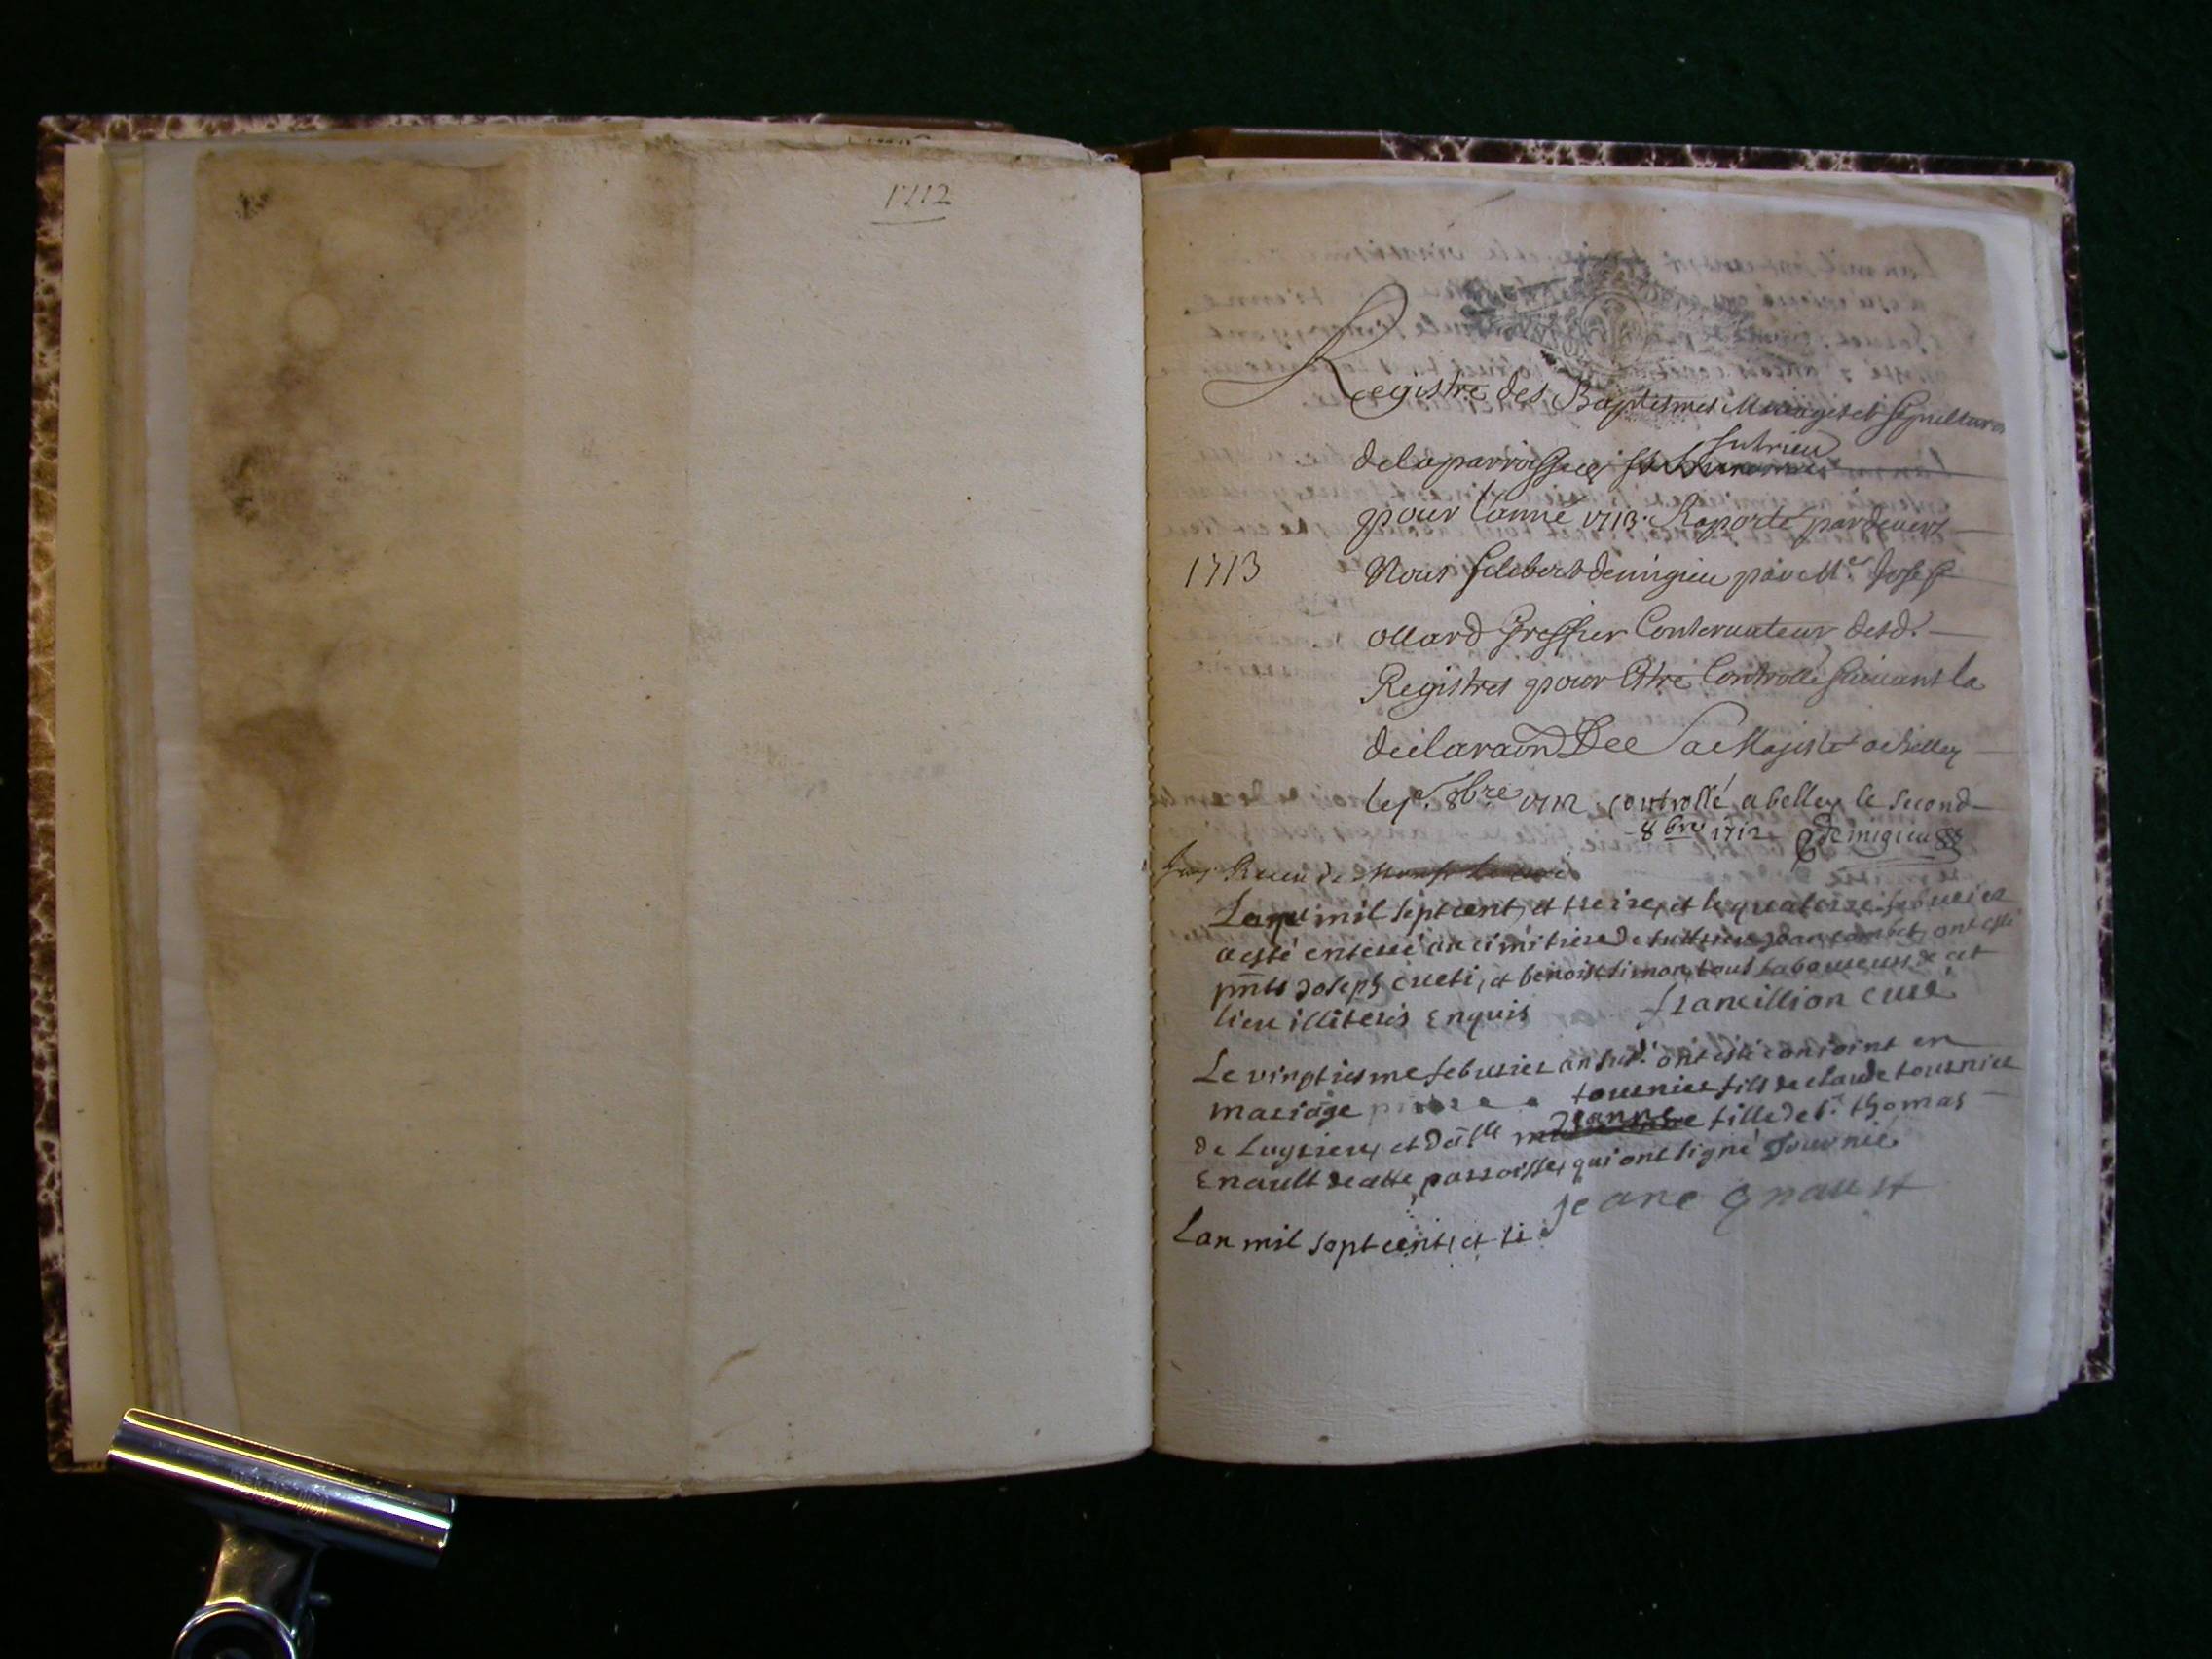 1712
Registre des Baptismes Mariages et Sepultures
Sutrieu
de la parroisse
pour l'anné 1713. Raporté pardevers
1713
Nous filibert demigieu par Me. Josef
ollard Greffier Conservateur desd.
Registres pour Estre Controllé suivant la
declaraon Dee Sa Majesté a belley
le pr. 8bre 1712 controllé a belley le second
8bre 1712 Demigieu
Jay Receu de
Lan mil sept cent, et treize, et le quatorze febvrier
a esté enterré au cimitiere de suttrieu, ont esté
pnts Joseph cueti, et benoist simon, tous laboureurs de cet
lieu illiterés Enquis francillion curé
Le vingtiesme febvrier an sud. ont esté conjoint en
mariage tournier fils de claude tournier
Jeanne
de Luysieu, et dalle fille de sr. thomas
Enault de cette parroisse, qui ont signé Tournié
Jeane Gnaust
Lan mil sept cent, et